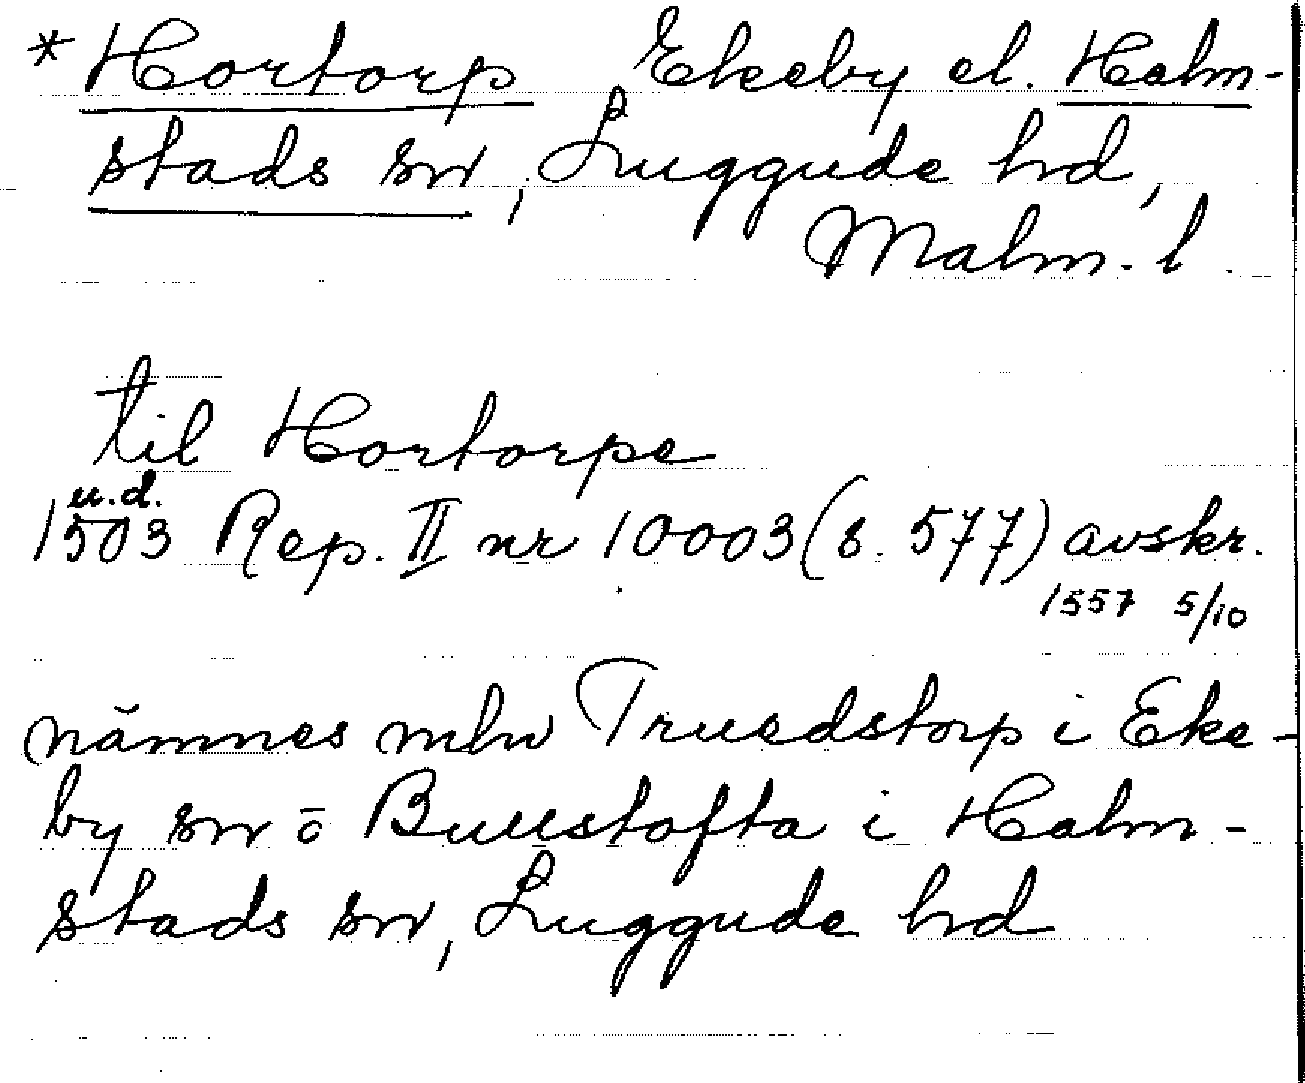 * Hortorp Ekeby el. Halm-
stads sn, Luggude hd,
Malm. l.
til Hortorpe
u.d.
1503 Rep. II nr 10003 (s. 577) avskr.
1557 5/10
nämnes mln Truedstorp i Eke-
by sn o Bullstofta i Halm-
stads sn, Luggude hd